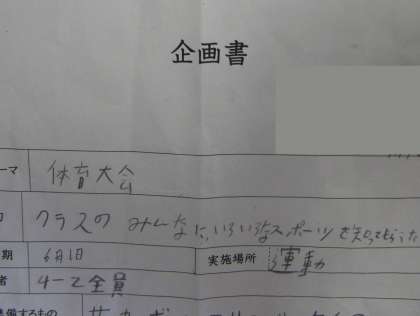 企画書
ーマ 体育大会
クラスの みんなに、いろいろなスポーツを知ってもらうた
期 6月1日 実施場所 運動
者 4-2全員
備するもの サッカーボ